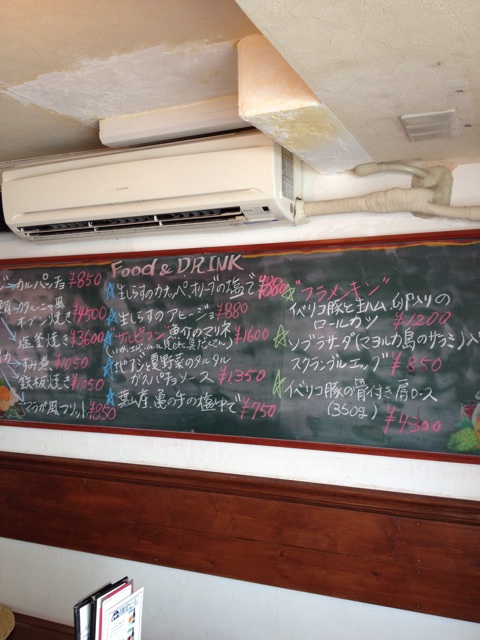 Food & DRINK
カルパッチョ ¥850
オーブン焼き ¥4500
塩釜焼き ¥3600
すみ煮 ¥1050
鉄板焼き ¥1050
マラガ風フリット ¥850
☆生しらすのカナッペ、オリーブの塩で ¥880
☆生しらすのアヒージョ ¥880
☆サルピコン 魚介のマリネ ¥1600
☆地ダコと夏野菜のタルタル
ガスパチョソース ¥1350
☆葉山産、亀の手の塩ゆで ¥750
☆"フラメンキン"
イベリコ豚と生ハム、卵入りの
ロールカツ ¥1200
☆ソブラサーダ(マヨルカ島のサラミ)入
スクランブルエッグ ¥850
☆イベリコ豚の骨付き肩ロース
(350g) ¥4300